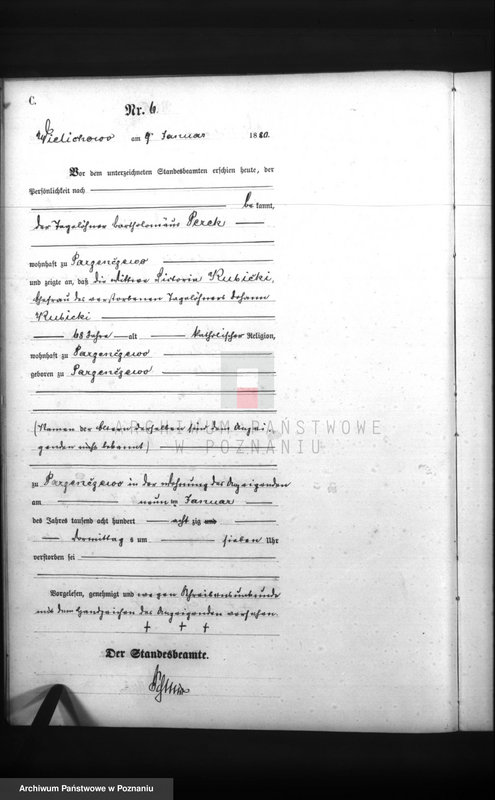 C.
Nr. 6.
Wielichowo am 9. Januar 1880.
Vor dem unterzeichneten Standesbeamten erschien heute, der
Persönlichkeit nach
be kannt,
der Tagelöhner Bartholomäus Perek
wohnhaft zu Parzenczewo
und zeigte an, daß die Wittwe Victoria Kubicki,
Ehefrau des verstorbenen Tagelöhners Johann
Kubicki
68 Jahre alt katholischer Religion,
wohnhaft zu Parzenczewo
geboren zu Parzenczewo
(Namen der Eltern derselben sind dem Anzei-
genden nicht bekannt)
ARCHIWUM PAŃSTWOWE
W POZNANIU
zu Parzenczewo in der Wohnung des Anzeigenden
am neunten Januar
des Jahres tausend acht hundert achtzig und
Vormittags um sieben Uhr
verstorben sei
Vorgelesen, genehmigt und wegen Schreibensunkunde
mit dem Handzeichen des Anzeigenden versehen.
+ + +
Der Standesbeamte.
Archiwum Państwowe w Poznaniu